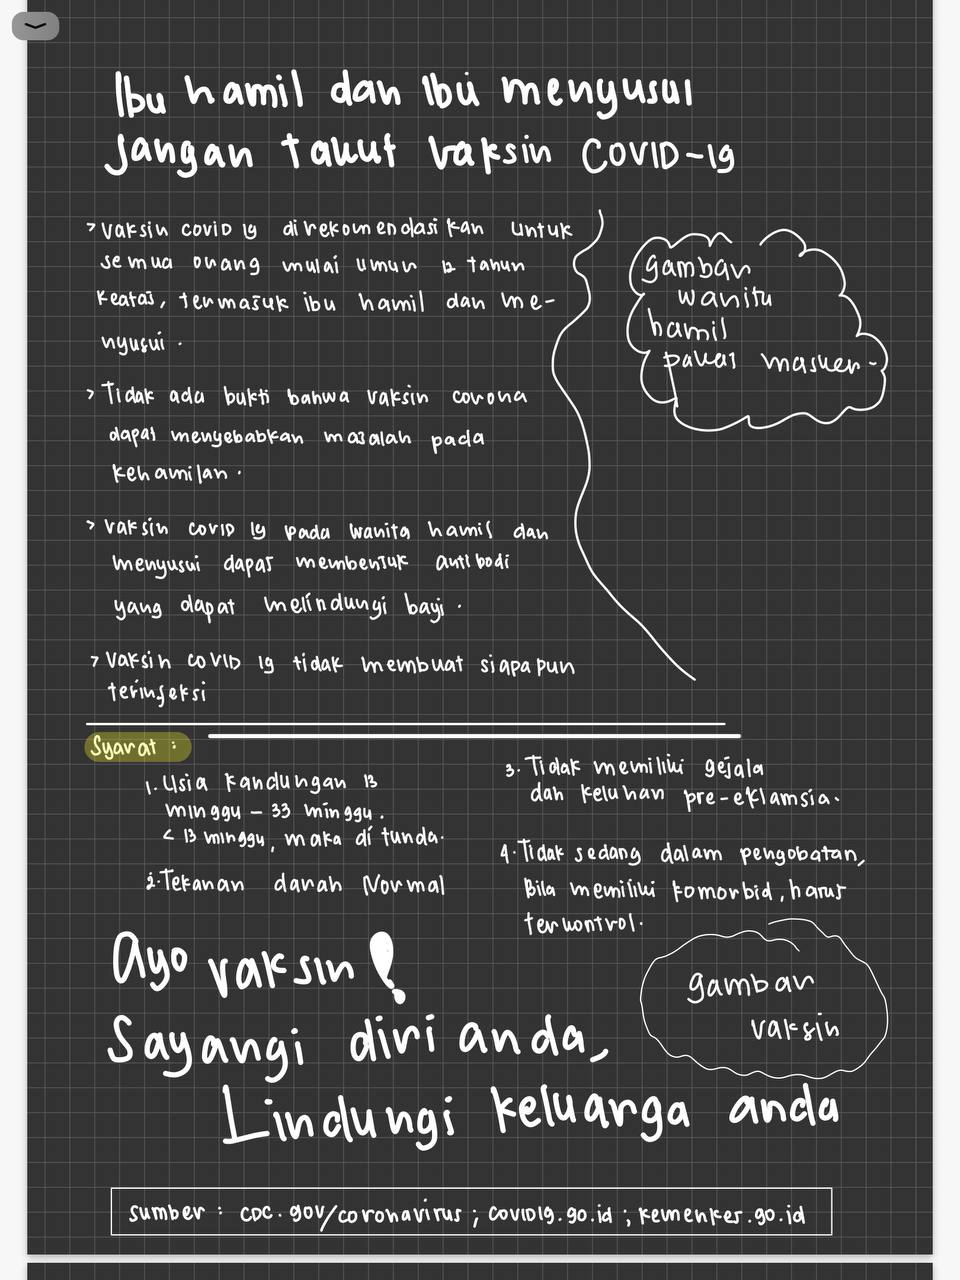 Ibu hamil dan Ibu menyusui
Jangan takut vaksin COVID-19
> Vaksin covid 19 direkomendasikan untuk
semua orang mulai umur 12 tahun
keatas, termasuk ibu hamil dan me-
nyusui.
> Tidak ada bukti bahwa vaksin corona
dapat menyebabkan masalah pada
kehamilan.
> vaksin covid 19 pada wanita hamil dan
menyusui dapat membentuk antibodi
yang dapat melindungi bayi.
> Vaksin COVID 19 tidak membuat siapapun
terinfeksi
gambar
wanita
hamil
pakai masker-
Syarat :
1. Usia kandungan 13
minggu - 33 minggu.
< 13 minggu, maka di tunda.
2. Tekanan darah Normal
3. Tidak memiliki gejala
dan keluhan pre-eklamsia.
4. Tidak sedang dalam pengobatan,
Bila memiliki komorbid, harus
terkontrol.
Ayo vaksin!
Sayangi diri anda,
Lindungi keluarga anda
gambar
vaksin
sumber : CDC.gov/coronavirus ; COVID19.go.id ; kemenkes.go.id